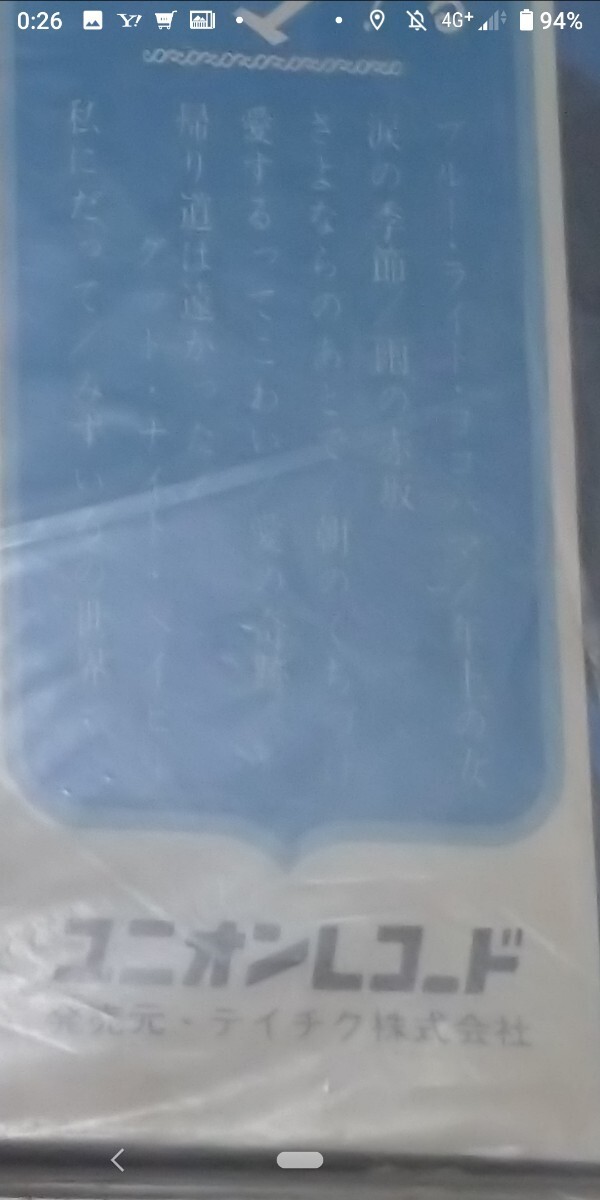 0:26 4G+ 94%
ブルー・ライト・ヨコハマ/年上の女
涙の季節/雨の赤坂
さよならのあとで 朝の
愛するってこわい 愛の
帰り道は遠かった
グッド・ナイト・ベイビー
私にだって/みずいろの世界
ユニオンレコード
発売元・テイチク株式会社